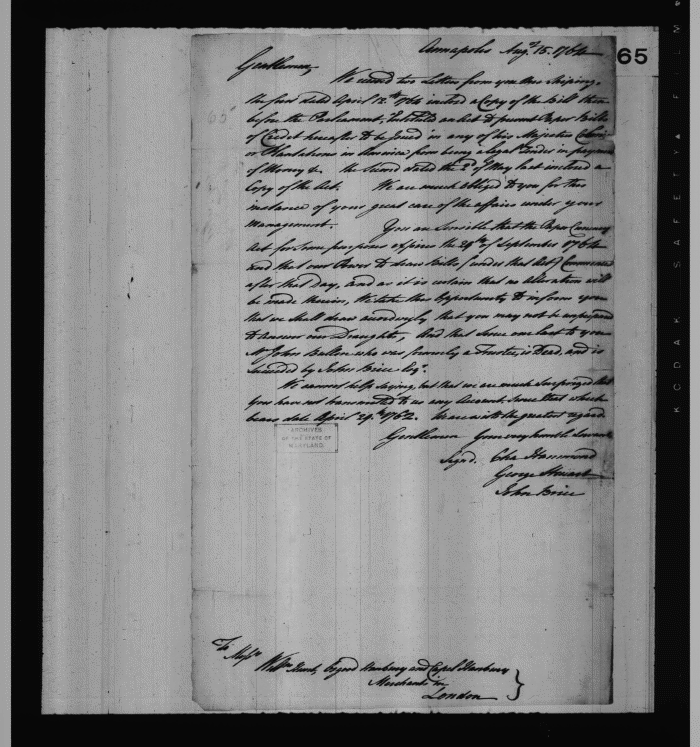 65
Annapolis Augt. 15. 1764
Gentlemen,
We received two Letters from you this Shiping,
the first dated April 12th 1764 inclosed a Copy of the Bill then
before the Parliament, Intitled an Act to prevent Paper Bills
of Credit hereafter to be Issued in any of his Majesties Colonies
or Plantations in America from being a Legal Tender in payment
of Money &c. the Second dated the 2d. of May last inclosed a
Copy of the Act. We are much obliged to you for this
instance of your great care of the affairs under your
Management. You are Sensible that the Paper Currency
Act for some purposes expires the 29th of September 1764
and that our Power to draw Bills (under that Act) Commences
after that Day, and as it is certain that no alteration will
be made therein, We take this Opportunity to inform you
that we shall draw accordingly that you may not be unprepared
to answer our Draughts, And that Since our last to you
Mr. John Bullen who was formerly a Trustee, is Dead, and is
Succeeded by John Brice Esqr.
We cannot help saying, but that we are much Surprized that
you have not transmitted to us any Account since that which
bears date April 29th. 1762. We are with the greatest regard
Gentlemen Your very humble Servants
Signd. Cha Hammond
George Steuart
John Brice
ARCHIVES
OF THE STATE OF
MARYLAND
To
Messrs
Willm. Hunt, Osgood Hanbury and Capel Hanbury
Merchants in
London
KODAK SAFETY FILM